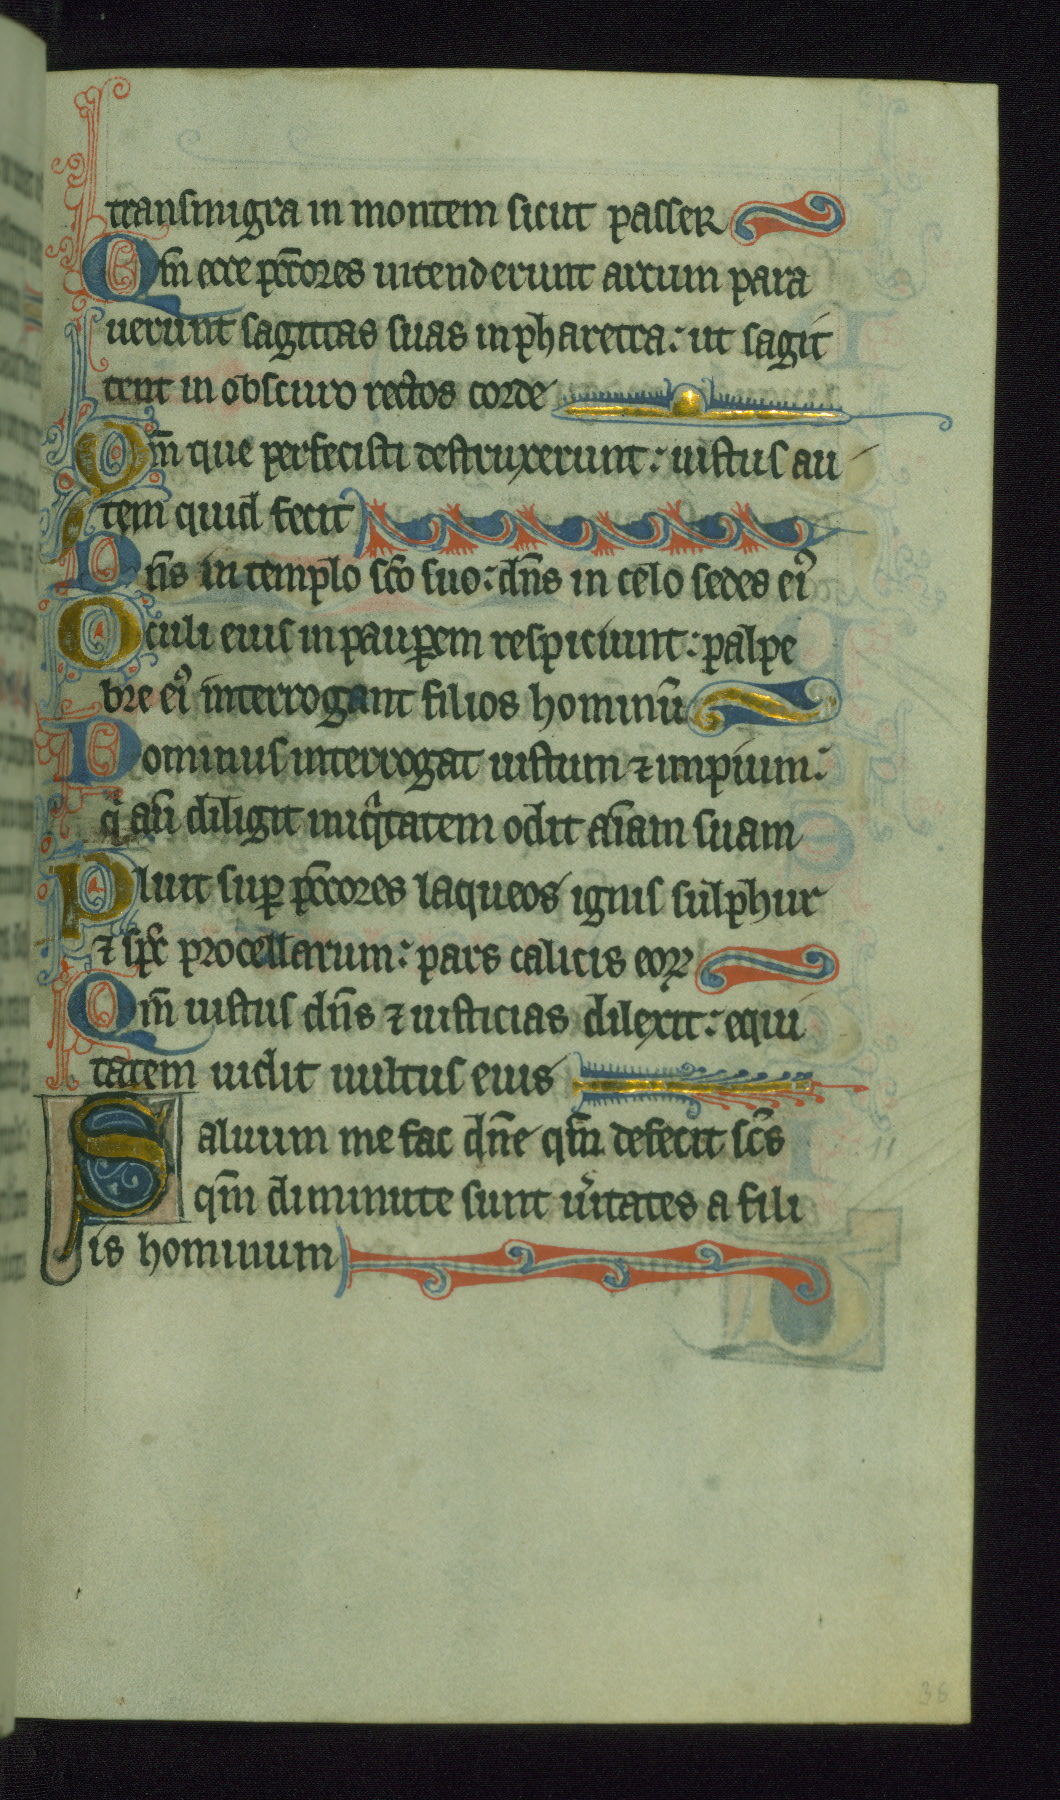 transmigra in montem sicut passer
Qm̄ ecce pc̄cores intenderunt arcum para
uerunt sagittas suas in pharetra: ut sagit
tent in obscuro rectos corde
Qm̄ que perfecisti destruxerunt: iustus au
tem quid fecit
Dn̄s in templo sc̄o suo: dn̄s in celo sedes eiꝰ
Oculi eius in pauꝑem respiciunt: palpe
bre eiꝰ interrogant filios hominū
Dominus interrogat iustum ⁊ impium:
qͥ aū diligit iniqͥtatem odit aīam suam
Pluit suꝑ pc̄cores laqueos ignis sulphur
⁊ sp̄c procellarum: pars calicis eoꝝ
Qm̄ iustus dn̄s ⁊ iusticias dilexit: equi
tatem uidit uultus eius
Saluum me fac dn̄e qm̄ defecit sc̄s
qm̄ diminute sunt u͛itates a fili
is hominum
11
36